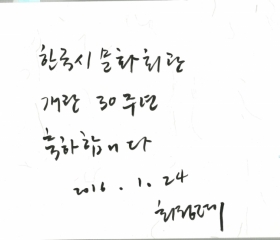 한국시문화회관
개관 30주년
축하합니다
2016.1.24